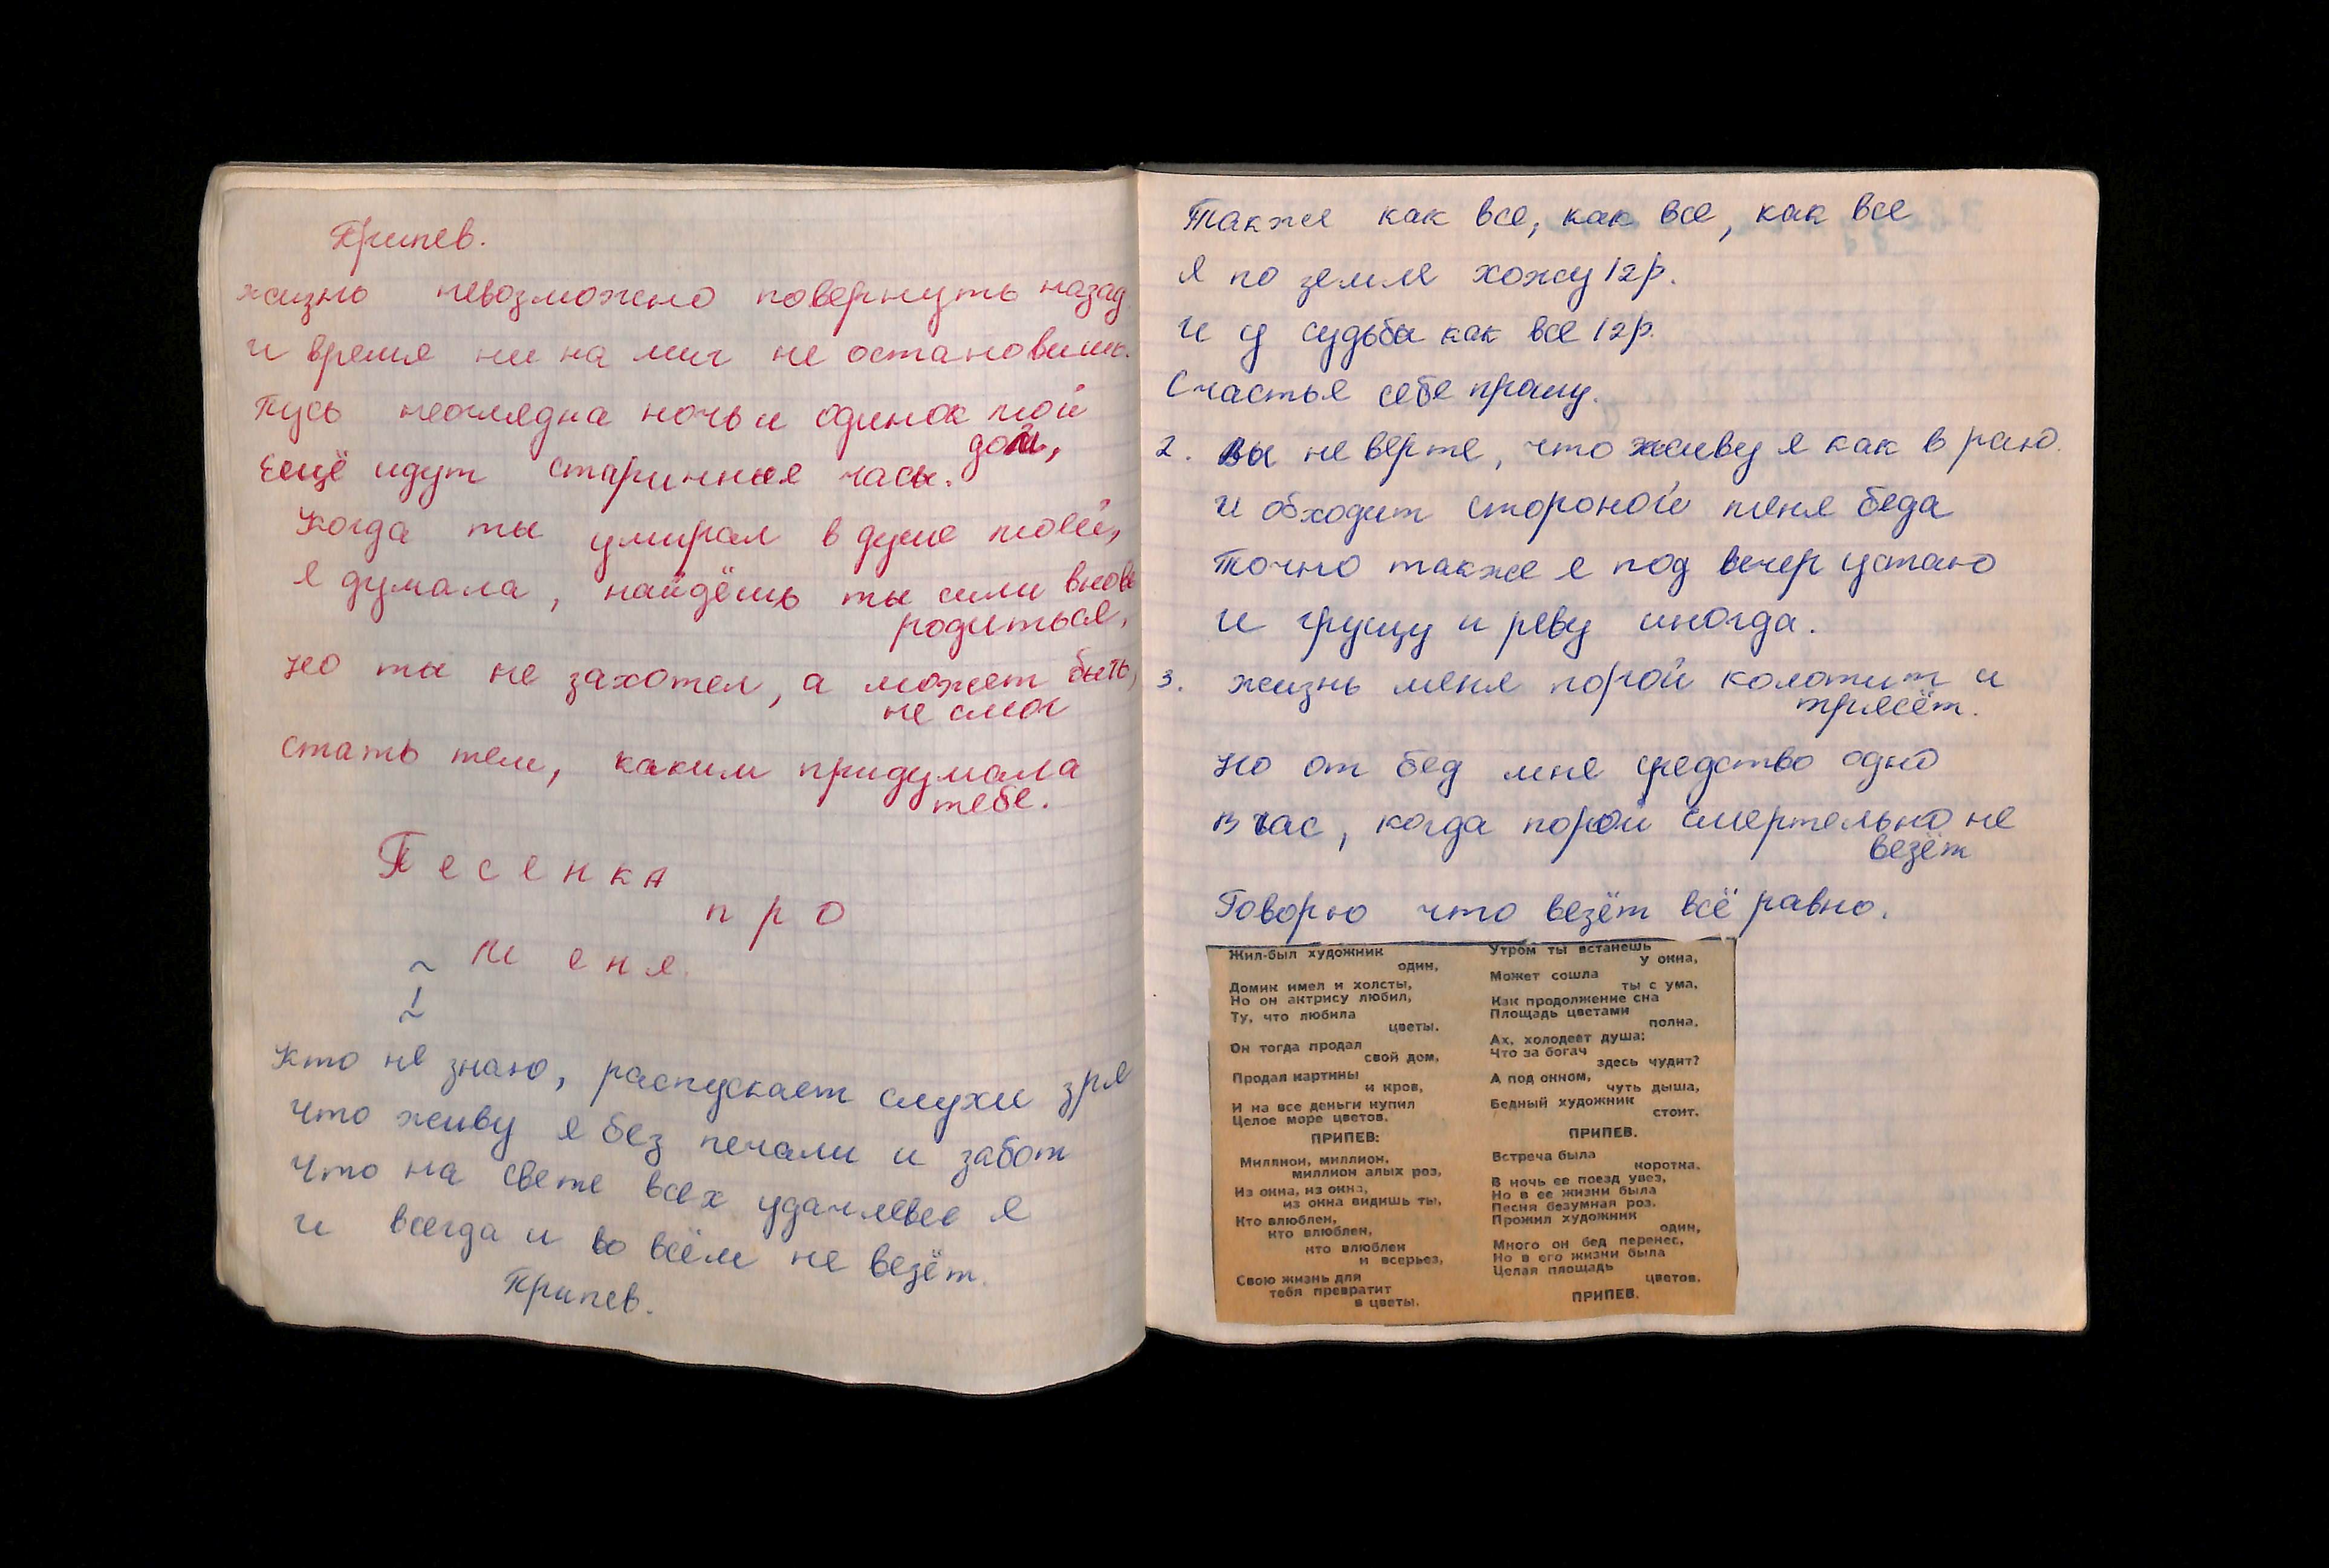 Припев.
жизнь невозможно повернуть назад
и время ни на миг не остановишь.
Пусь неоглядна ночь и одинок мой
дом,
Ещё идут старинные часы.
Когда ты умирал в душе моей,
я думала, найдёшь ты силы вновь
родиться,
но ты не захотел, а может быть,
не смог
стать тем, каким придумала
тебе.
Песенка
про
меня.
~
1
~
Кто не знаю, распускает слухи зря
Что живу я без печали и забот
Что на свете всех удачлевее я
и всегда и во всём не везёт.
Припев.
Также как все, как все, как все
я по земле хожу /2р.
и у судьбы как все /2р.
Счастье себе прошу.
2. вы не верте, что живу я как в раю.
и обходит стороной меня беда
точно также я под вечер устаю
и грущу и реву иногда.
3. жизнь меня порой колотит и
трясёт.
но от бед мне средство одно
в час, когда порой смертельно не
везёт
Говорю что везёт всё равно.
Жил-был художник
один,
Домик имел и холсты,
Но он актрису любил,
Ту, что любила
цветы.
Он тогда продал
свой дом,
Продал картины
и кров,
И на все деньги купил
Целое море цветов.
ПРИПЕВ:
Миллион, миллион,
миллион алых роз,
Из окна, из окна,
из окна видишь ты,
Кто влюблен,
кто влюблен,
кто влюблен
и всерьез,
Свою жизнь для
тебя превратит
в цветы.
Утром ты встанешь
у окна,
Может сошла
ты с ума,
Как продолжение сна
Площадь цветами
полна.
Ах, холодеет душа:
Что за богач
здесь чудит?
А под окном,
чуть дыша,
Бедный художник
стоит.
ПРИПЕВ.
Встреча была
коротка,
В ночь ее поезд увез,
Но в ее жизни была
Песня безумная роз.
Прожил художник
один,
Много он бед перенес,
Но в его жизни была
Целая площадь
цветов.
ПРИПЕВ.